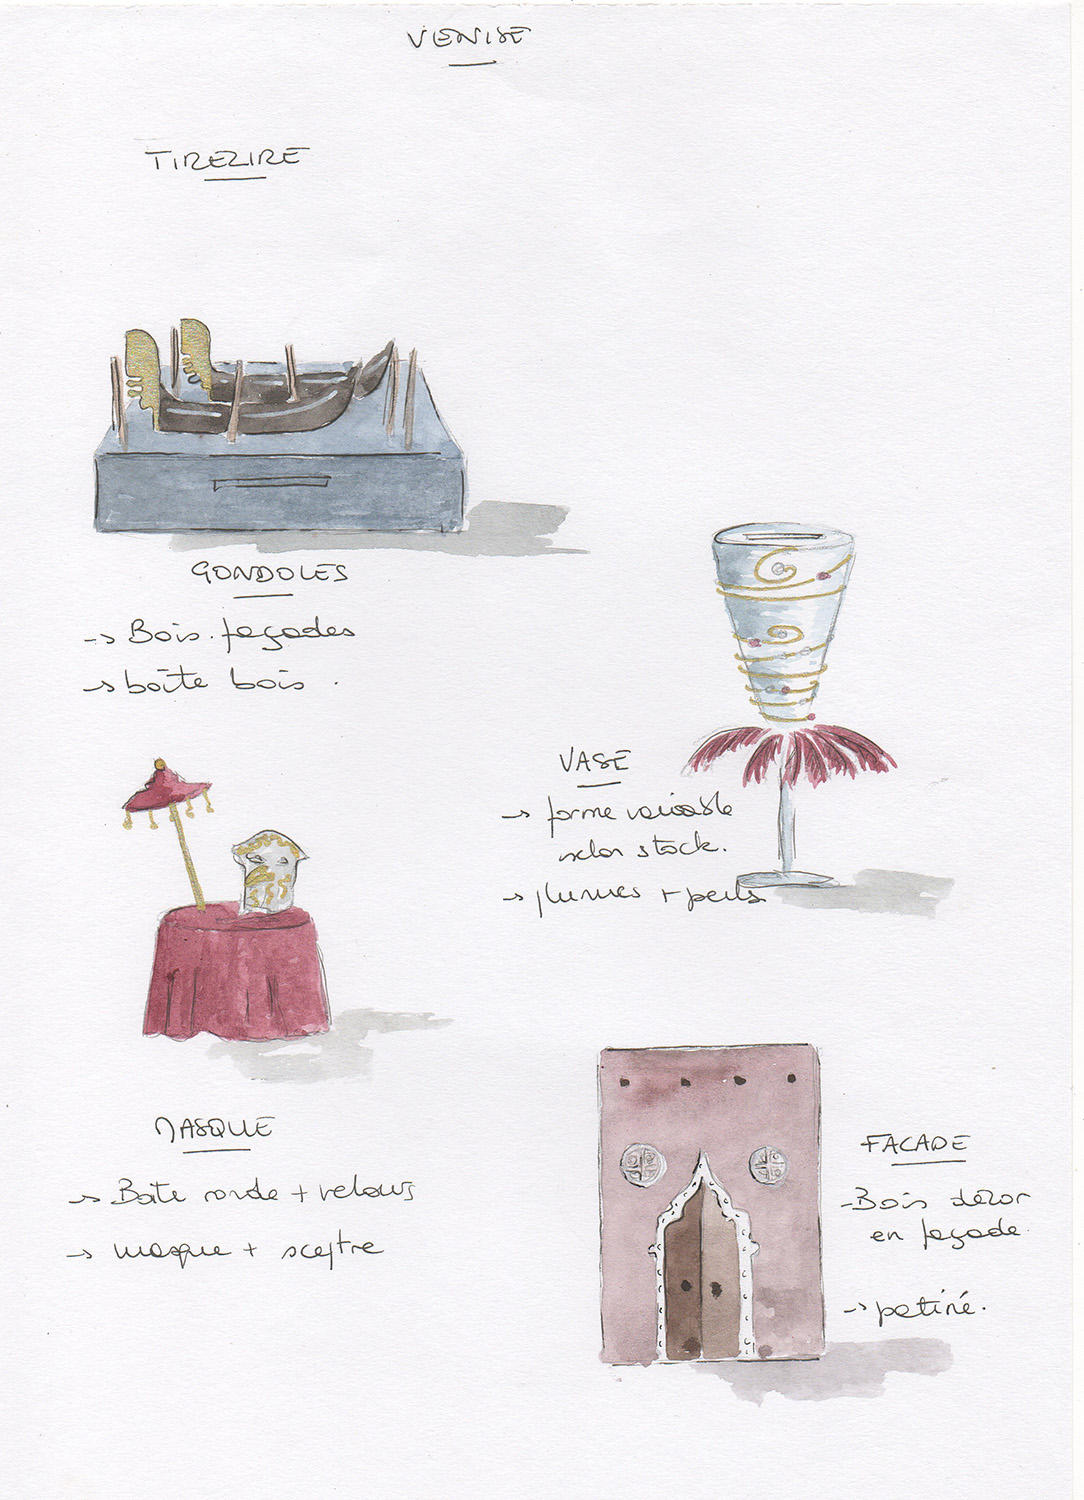 VENISE
TIRELIRE
GONDOLES
→ Bois. façades
→ boîte bois.
VASE
→ forme variable
selon stock.
→ plumes + perles
MASQUE
→ Boite ronde + velours
→ masque + sceptre
FACADE
-Bois décor
en façade.
→ patiné.